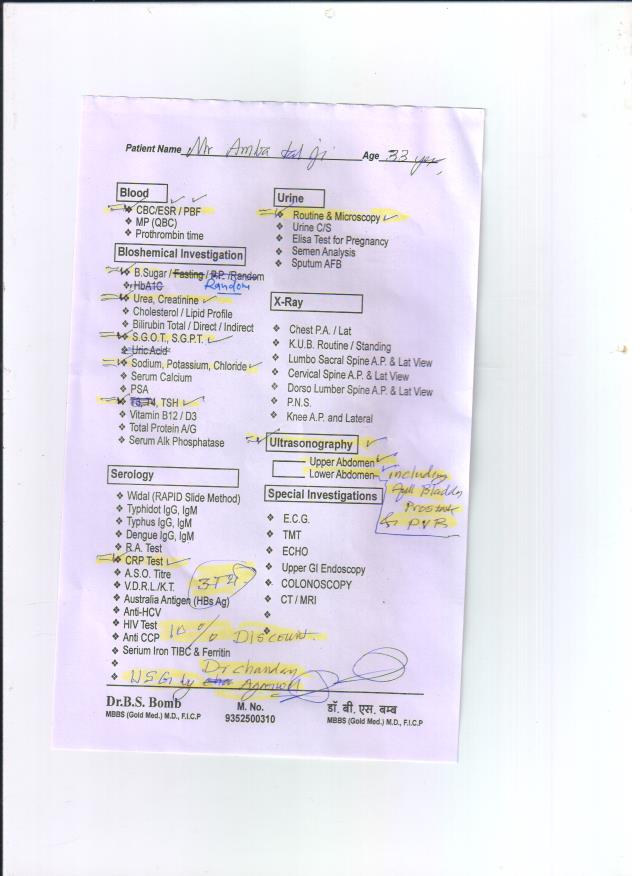 Patient Name Mr Amba Lal Ji Age 33 yrs
Blood
CBC/ESR / PBF
MP (QBC)
Prothrombin time
Bioshemical Investigation
B.Sugar / Fasting / P.P. /Random
HbA1C Random
Urea, Creatinine
Cholesterol / Lipid Profile
Bilirubin Total / Direct / Indirect
S.G.O.T., S.G.P.T.
Uric Acid
Sodium, Potassium, Chloride
Serum Calcium
PSA
T3, T4, TSH
Vitamin B12 / D3
Total Protein A/G
Serum Alk Phosphatase
Serology
Widal (RAPID Slide Method)
Typhidot IgG, IgM
Typhus IgG, IgM
Dengue IgG, IgM
R.A. Test
CRP Test
A.S.O. Titre
V.D.R.L./K.T.
Australia Antigen (HBs Ag)
Anti-HCV
HIV Test
Anti CCP 10% DISCOUNT.
Serium Iron TIBC & Ferritin
Dr Chandan
USG by Agarwal
Urine
Routine & Microscopy
Urine C/S
Elisa Test for Pregnancy
Semen Analysis
Sputum AFB
X-Ray
Chest P.A. / Lat
K.U.B. Routine / Standing
Lumbo Sacral Spine A.P. & Lat View
Cervical Spine A.P. & Lat View
Dorso Lumber Spine A.P. & Lat View
P.N.S.
Knee A.P. and Lateral
Ultrasonography
Upper Abdomen
Lower Abdomen including
full Bladder
Prostate
& PVR
Special Investigations
E.C.G.
TMT
ECHO
Upper GI Endoscopy
COLONOSCOPY
CT / MRI
Dr.B.S. Bomb
MBBS (Gold Med.) M.D., F.I.C.P
M. No.
9352500310
डॉ. बी. एस. बम्ब
MBBS (Gold Med.) M.D., F.I.C.P